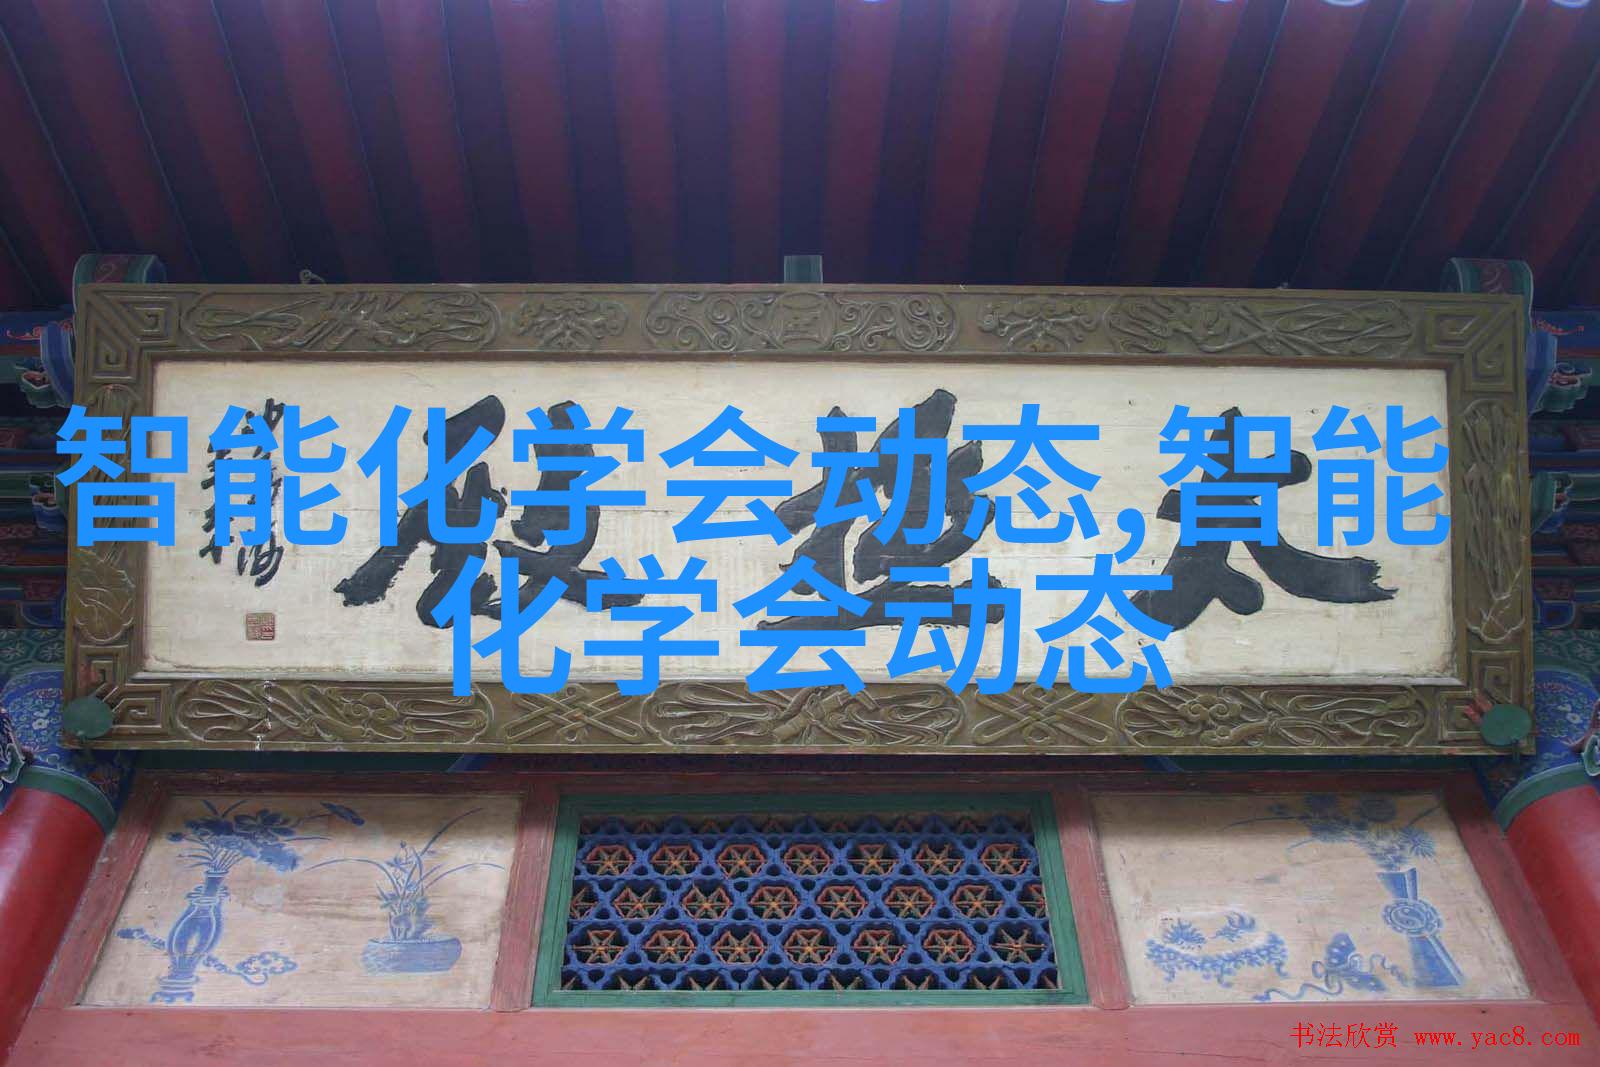 智能化学会动态,智能
化学会动态
太极殿
书法欣赏 www.yac8.com